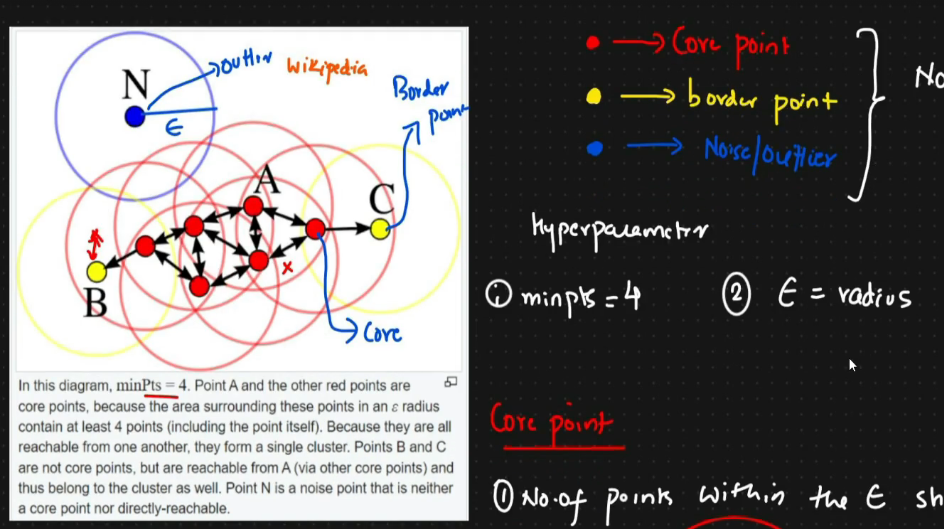 N
outlir wikipedia
ϵ
Border
point
A
C
B
x
Core
In this diagram, minPts = 4. Point A and the other red points are
core points, because the area surrounding these points in an ε radius
contain at least 4 points (including the point itself). Because they are all
reachable from one another, they form a single cluster. Points B and C
are not core points, but are reachable from A (via other core points) and
thus belong to the cluster as well. Point N is a noise point that is neither
a core point nor directly-reachable.
→ Core point
→ border point
→ Noise/outlier
No
Hyperparameter
① minpts = 4 ② ϵ = radius
Core point
① No. of points within the ϵ sh